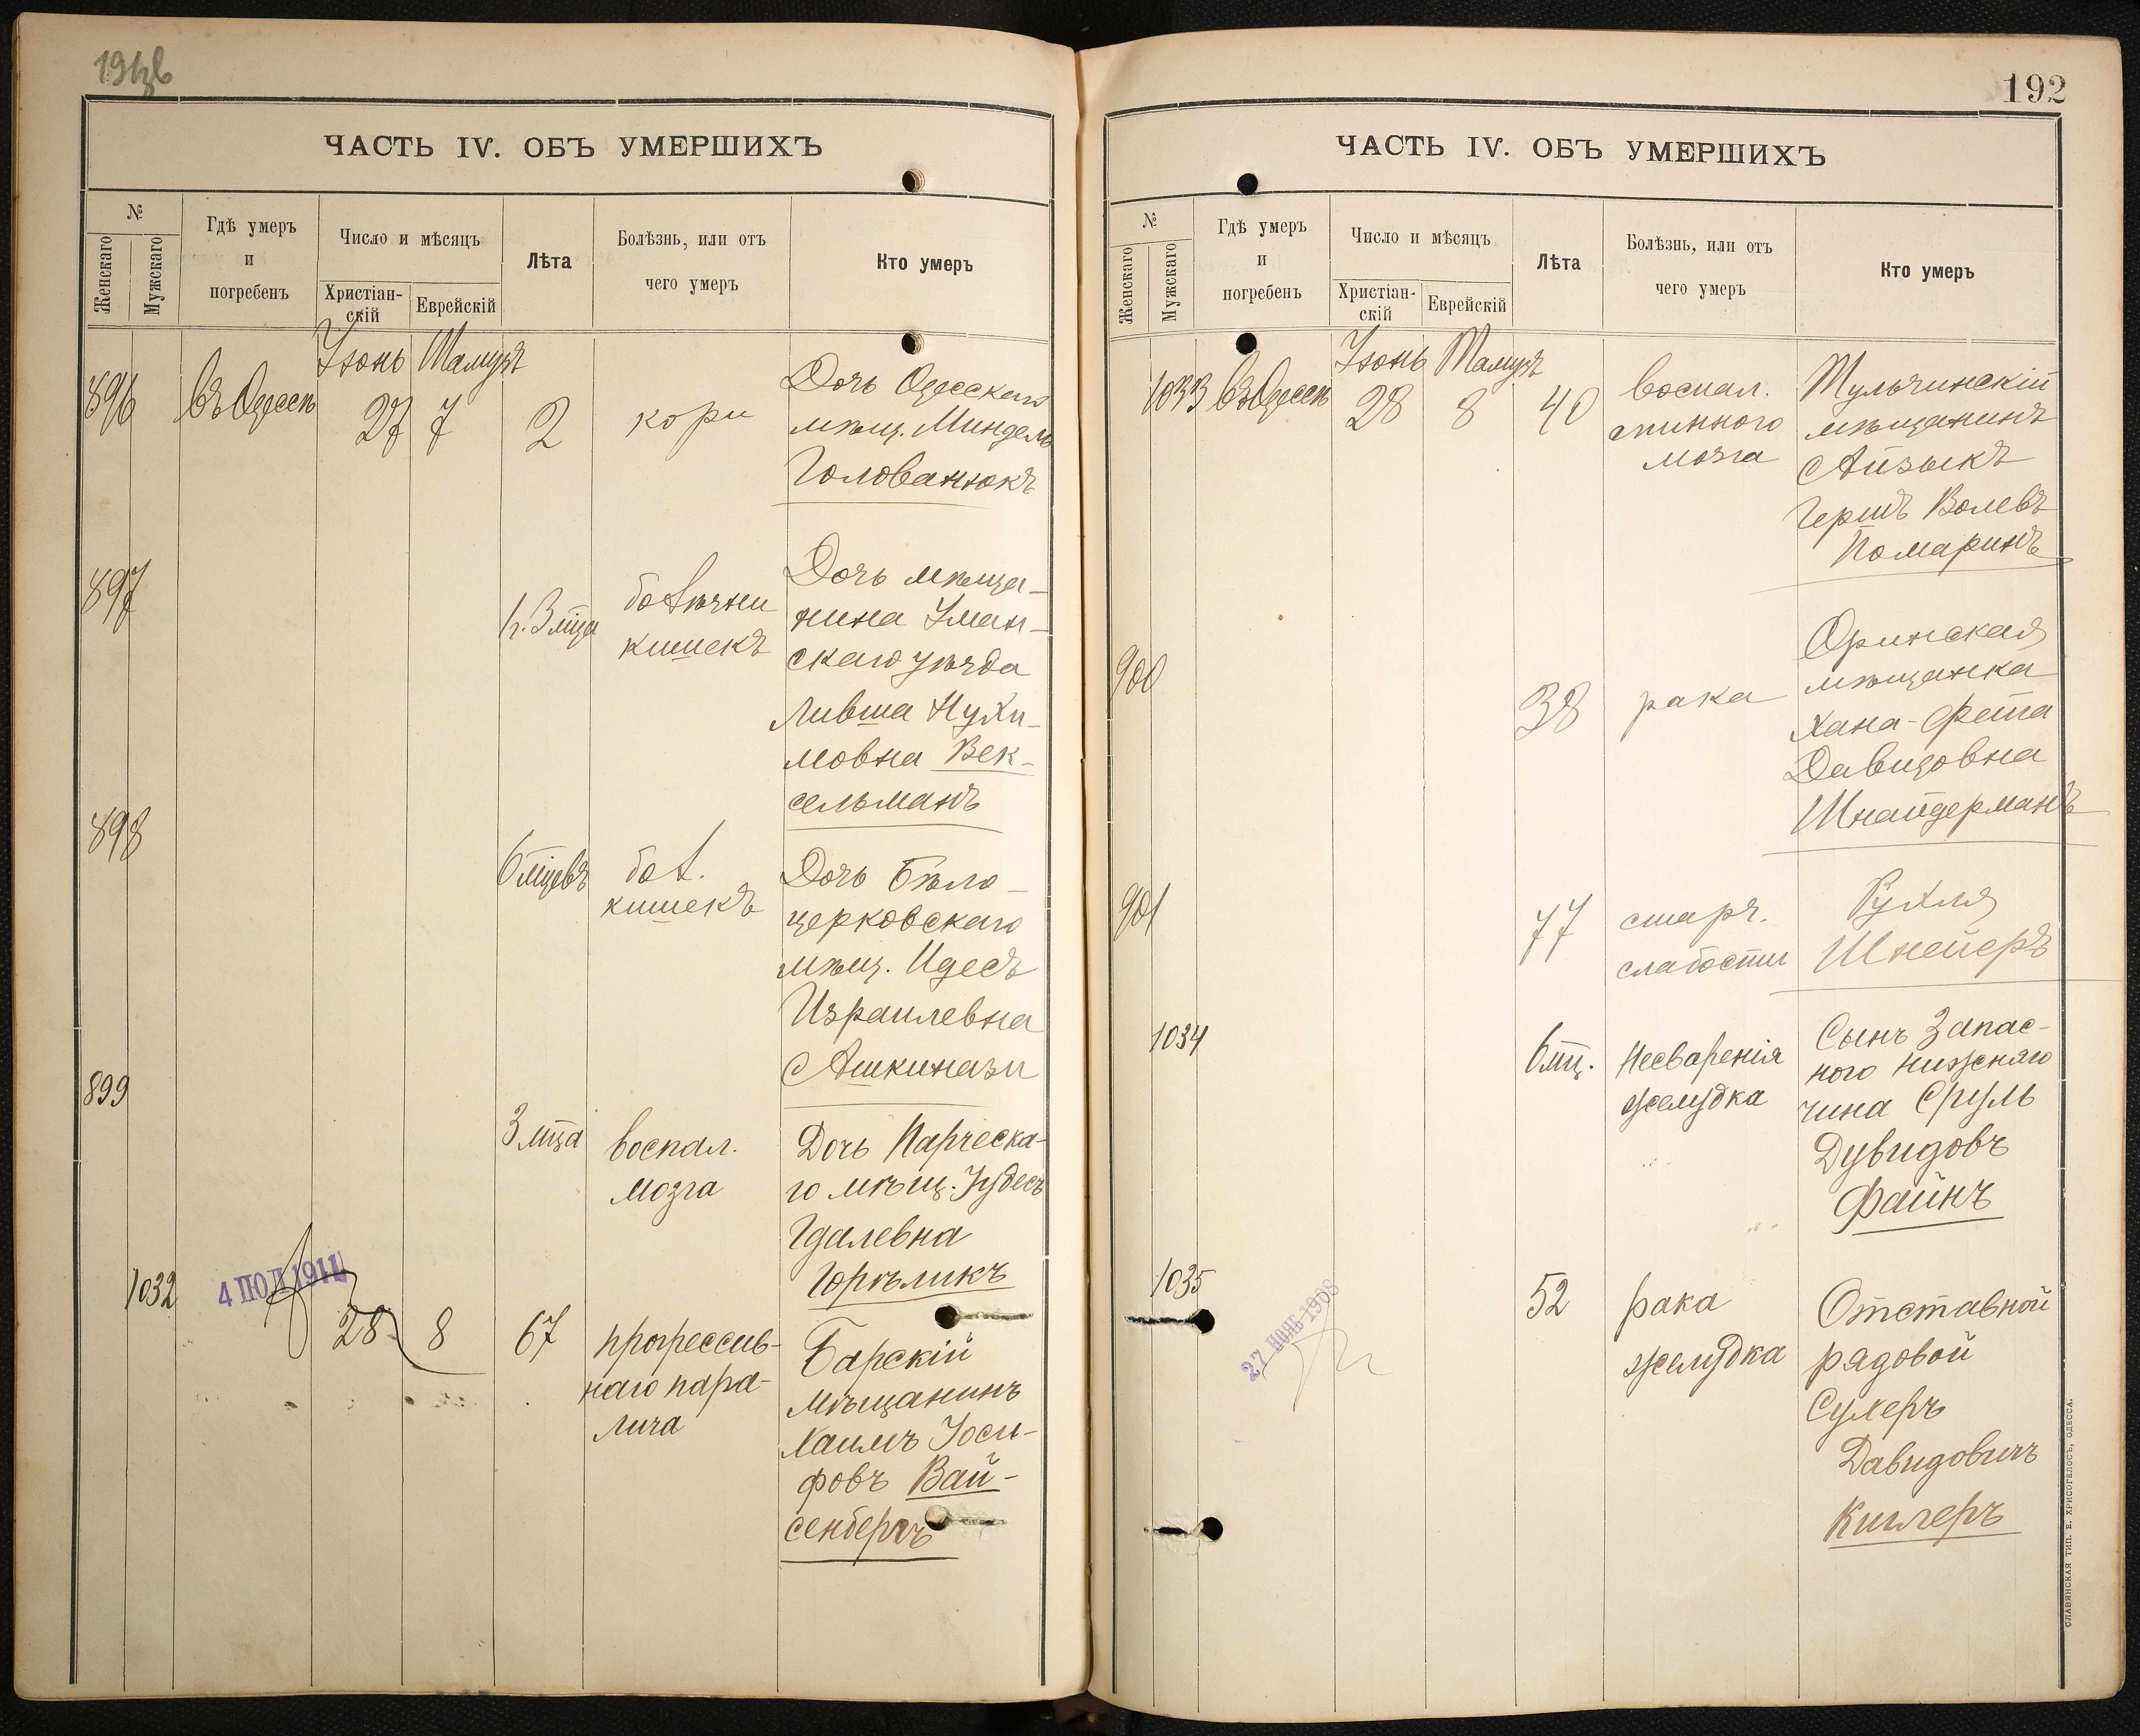 ЧАСТЬ IV. ОБЪ УМЕРШИХЪ
№
Женскаго
Мужскаго
Гдѣ умеръ
и
погребенъ
Число и мѣсяцъ
Христіан-
скій
Еврейскій
Лѣта
Болѣзнь, или отъ
чего умеръ
Кто умеръ
Іюнь Тамузъ
896 въ Одессѣ 27 7 2 кори
Дочь Одесскаго
мѣщ. Миндель
Голованюкъ
897
1 г. 3 мца
болѣзни
кишекъ
Дочь мѣща-
нина Уман-
скаго уѣзда
Ливша Нухи-
мовна Век-
сельманъ
898
6 мцевъ
бол.
кишекъ
Дочь Бѣло-
церковскаго
мѣщ. Идесъ
Израилевна
Ашкинази
899
3 мца
воспал.
мозга
Дочь
го мѣщ. Іудесъ
Гдалевна
Горѣликъ
1032
4 ІЮЛ 1911
28 8 67
прогрессив-
наго пара-
лича
Барскій
мѣщанинъ
Хаимъ Іоси-
фовъ Вай-
сенбергъ
192
ЧАСТЬ IV. ОБЪ УМЕРШИХЪ
№
Женскаго
Мужскаго
Гдѣ умеръ
и
погребенъ
Число и мѣсяцъ
Христіан-
скій
Еврейскій
Лѣта
Болѣзнь, или отъ
чего умеръ
Кто умеръ
Іюнь Тамузъ
1033 въ Одессѣ 28 8 40
воспал.
спинного
мозга
Тульчинскій
мѣщанинъ
Айзыкъ
Гершъ Волевъ
Помаринъ
900
38
рака
Оринская
мѣщанка
Хана-Фейга
Давидовна
Шнайдерманъ
901
77
старч.
слабости
Рухля
Шнейеръ
1034
6 мц.
несваренія
желудка
Сынъ запас-
ного нижняго
чина Сруль
Дувидовъ
Файнъ
1035
27 НОЯБ 1908
52
рака
желудка
Отставной
рядовой
Сухеръ
Давидовичъ
Киглеръ
СЛАВЯНСКАЯ ТИП. Е. ХРИСОГЕЛОСЪ, ОДЕССА.